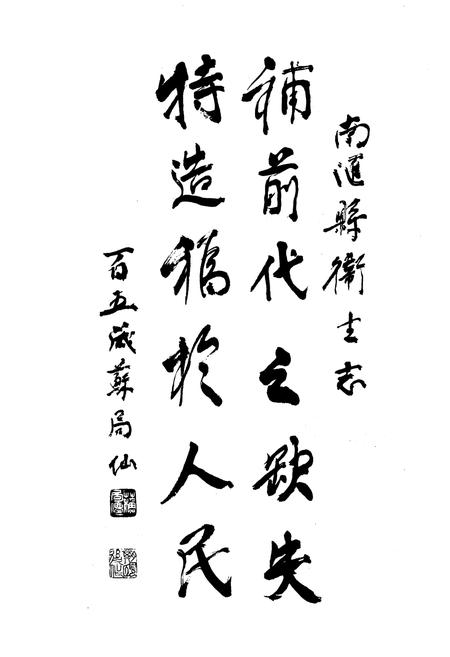 南滙縣衛生志
補前代之缺失
特造福於人民
百五歲蘇局仙